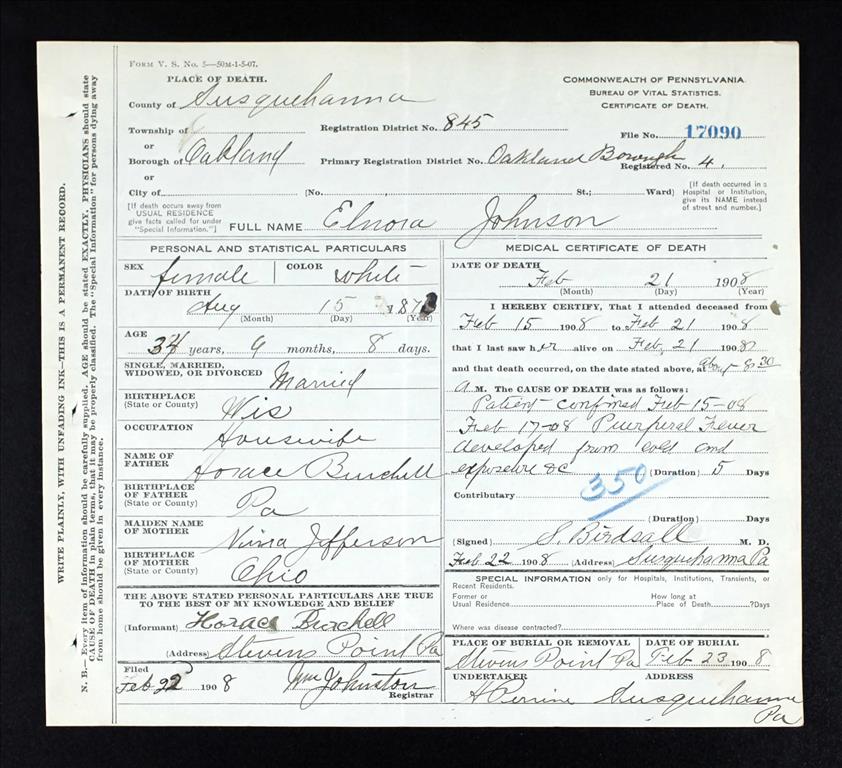 FORM V. S. No. 5—50M-1-5-07.
PLACE OF DEATH.
County of Susquehanna
Township of
or
Borough of Oakland
City of
Registration District No. 845
Primary Registration District No. Oakland Borough
(No. St.; Ward)
COMMONWEALTH OF PENNSYLVANIA
BUREAU OF VITAL STATISTICS.
CERTIFICATE OF DEATH.
File No. 17090
Registered No. 4.
[If death occurs away from
USUAL RESIDENCE
give facts called for under
"Special Information."]
[If death occurred in a
Hospital or Institution,
give its NAME instead
of street and number.]
FULL NAME Elnora Johnson
PERSONAL AND STATISTICAL PARTICULARS
SEX female COLOR white
DATE OF BIRTH
Aug 15 187
(Month) (Day) (Year)
AGE
34 years, 9 months, 8 days.
SINGLE, MARRIED,
WIDOWED, OR DIVORCED Married
BIRTHPLACE
(State or County) Wis
OCCUPATION Housewife
NAME OF
FATHER Horace Burchell
BIRTHPLACE
OF FATHER
(State or County) Pa
MAIDEN NAME
OF MOTHER Jefferson
BIRTHPLACE
OF MOTHER
(State or County) Ohio
THE ABOVE STATED PERSONAL PARTICULARS ARE TRUE
TO THE BEST OF MY KNOWLEDGE AND BELIEF
(Informant) Horace Burchell
(Address) Stevens Point Pa
Filed
Feb 22 1908 Wm Johnston
Registrar
MEDICAL CERTIFICATE OF DEATH
DATE OF DEATH
Feb 21 1908
(Month) (Day) (Year)
I HEREBY CERTIFY, That I attended deceased from
Feb 15 1908 to Feb 21 1908
that I last saw her alive on Feb, 21 1908
and that death occurred, on the date stated above, at 8 30
a M. The CAUSE OF DEATH was as follows:
Patient confined Feb 15-08
Feb 17-08 Puerperal Fever
developed from cold and
exposure &c (Duration) 5 Days
350
Contributary
(Duration) Days
(Signed) S. Birdsall M. D.
Feb 22 1908 (Address) Susquehanna Pa
SPECIAL INFORMATION only for Hospitals, Institutions, Transients, or
Recent Residents.
Former or
Usual Residence
How long at
Place of Death ? Days
Where was disease contracted?
PLACE OF BURIAL OR REMOVAL DATE OF BURIAL
Stevens Point Pa Feb 23 1908
UNDERTAKER ADDRESS
H Perrine Susquehanna
Pa
WRITE PLAINLY, WITH UNFADING INK—THIS IS A PERMANENT RECORD.
N. B.—Every item of information should be carefully supplied. AGE should be stated EXACTLY. PHYSICIANS should state
CAUSE OF DEATH in plain terms, that it may be properly classified. The "Special Information" for persons dying away
from home should be given in every instance.